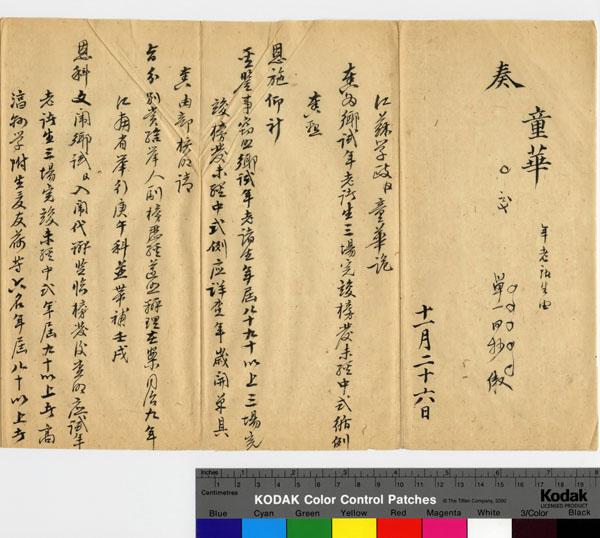 奏
童華
年老諸生由
單一田抄傲
十一月二十六日
江蘇學政臣童華跪
奏為鄉試年老諸生三場完竣榜發未經中式循例
奏懇
恩施仰
聖鑒事竊照鄉試年老諸生年屆八十九十以上三場完
竣榜發未經中式例應詳查年歲開單具
奏由部核明請
旨分別賞給舉人副榜歷經遵照辦理在案同治九年
江南省舉行庚午科並帶補壬戌
恩科文闈鄉試臣入闈代辦監臨榜發後查明應試年
老諸生三場完竣未經中式年屆九十以上者高
學附生 等六名年屆八十以上者
INCHES
Centimetres
KODAK Color Control Patches
© The Tiffen Company, 2000
Kodak
LICENSED PRODUCT
Blue Cyan Green Yellow Red Magenta White 3/Color Black